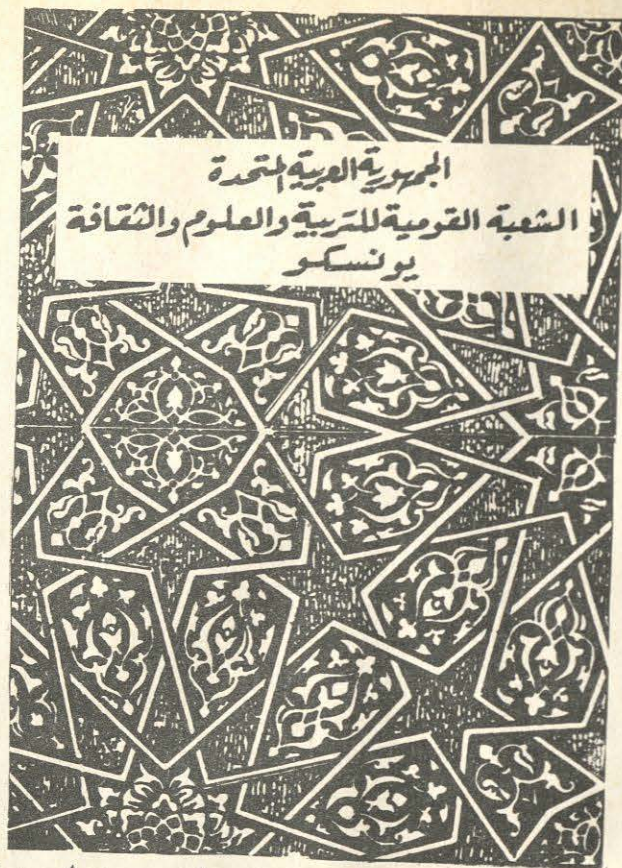 الجمهورية العربية المتحدة
الشعبة القومية للتربية والعلوم والثقافة
يونسكو